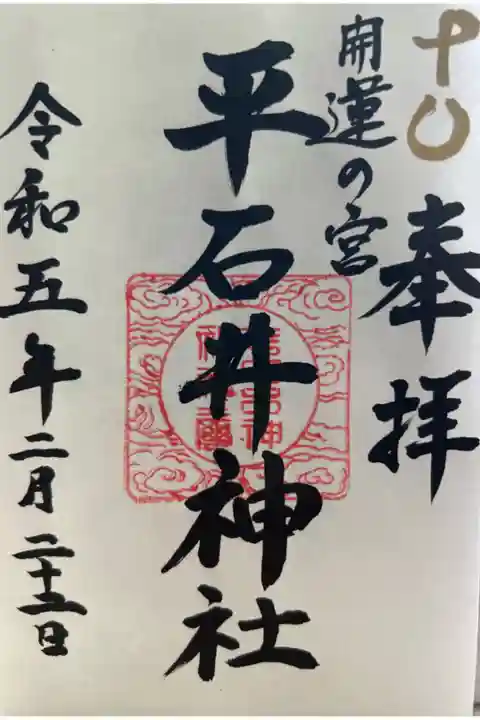 十〇
奉拝
開運の宮
平石井神社
令和五年二月二十二日